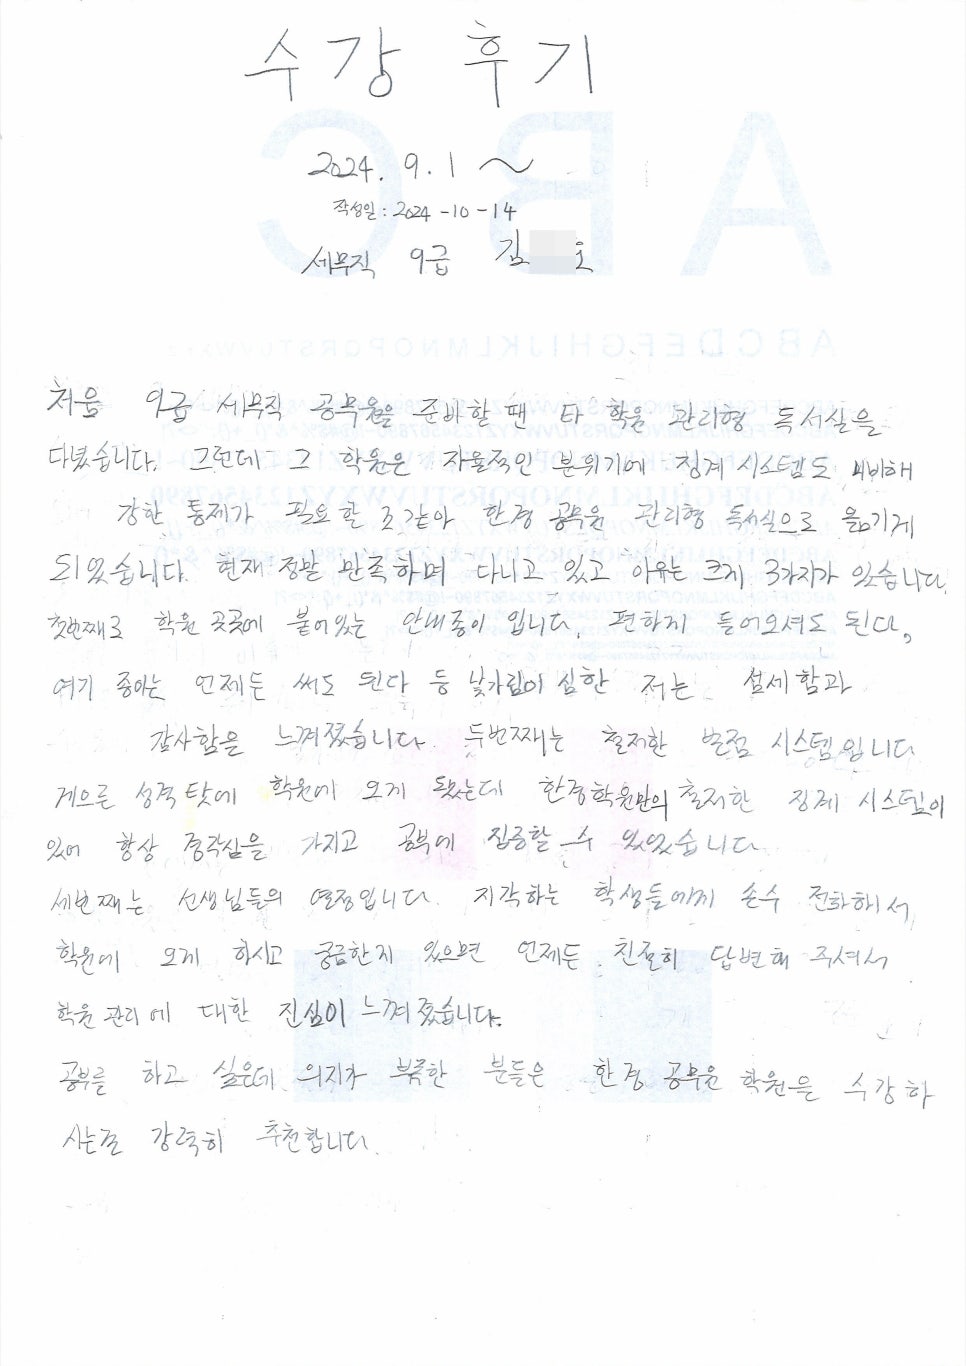 수강 후기
2024. 9. 1 ~
작성일 : 2024 -10 -14
세무직 9급 김 호
처음 9급 세무직 공무원을 준비할 땐 타 학원 관리형 독서실을
다녔습니다. 그런데 그 학원은 자율적인 분위기에 징계 시스템도 미비해
강한 통제가 필요할 것 같아 한경 공무원 관리형 독서실으로 옮기게
되었습니다. 현재 정말 만족하며 다니고 있고 이유는 크게 3가지가 있습니다.
첫번째로 학원 곳곳에 붙어있는 안내종이 입니다. 편하게 들어오셔도 된다,
여기 종이는 언제든 써도 된다 등 낯가림이 심한 저는 섬세함과
감사함을 느껴졌습니다. 두번째는 철저한 벌점 시스템입니다
게으른 성격 탓에 학원에 오게 됐는데 한경학원만의 철저한 징계 시스템이
있어 항상 경각심을 가지고 공부에 집중할 수 있었습니다
세번째는 선생님들의 열정입니다. 지각하는 학생들에게 손수 전화하셔서
학원에 오게 하시고 궁금한게 있으면 언제든 친절히 답변해 주셔서
학원 관리에 대한 진심이 느껴졌습니다.
공부를 하고 싶은데 의지가 부족한 분들은 한경 공무원 학원을 수강하
시는걸 강력히 추천합니다.
A B C